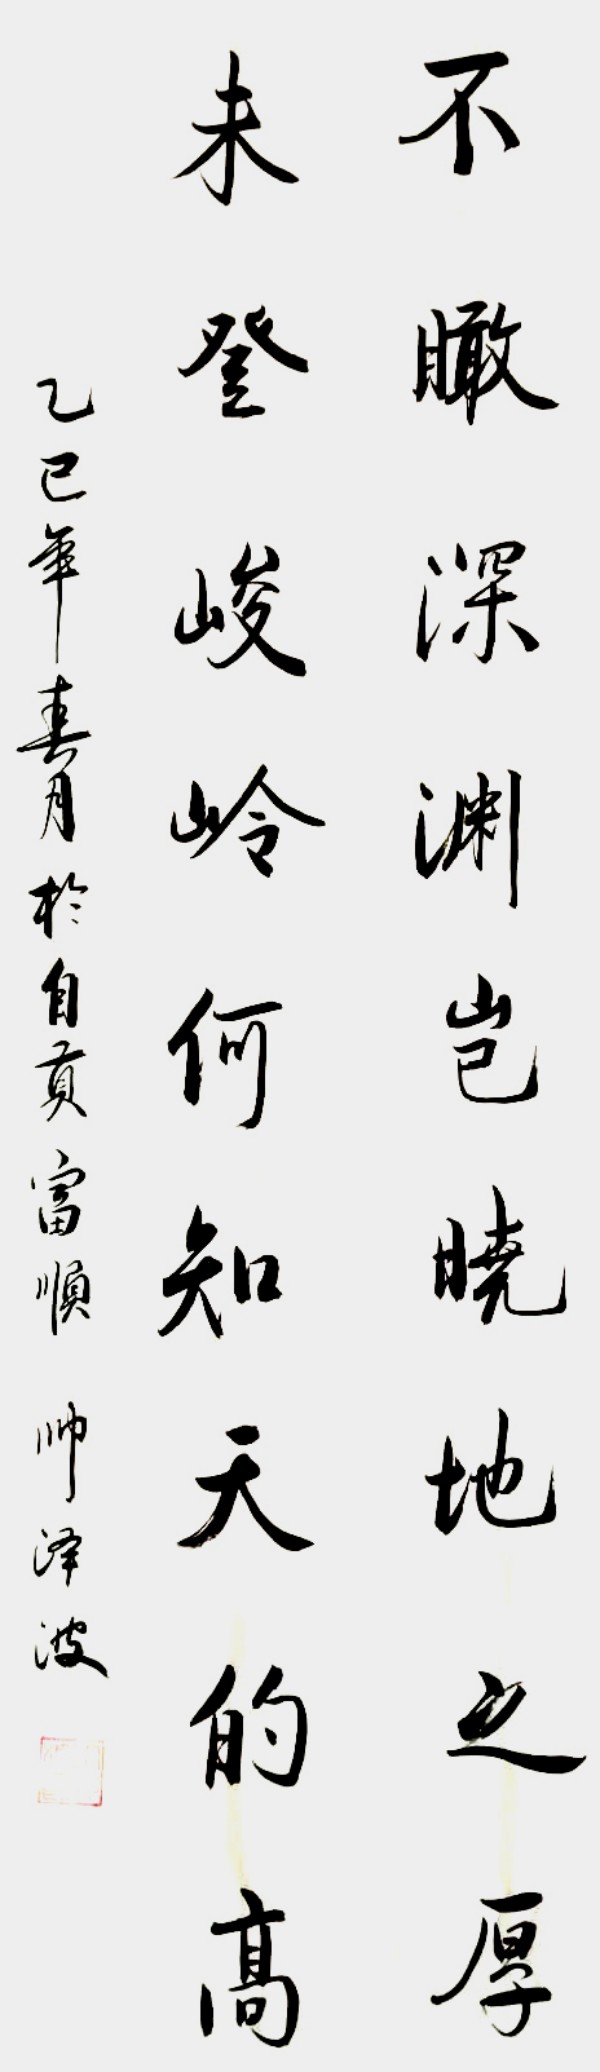 不瞰深渊岂晓地之厚
未登峻岭何知天的高
乙巳年春月於自贡富順 帅泽波